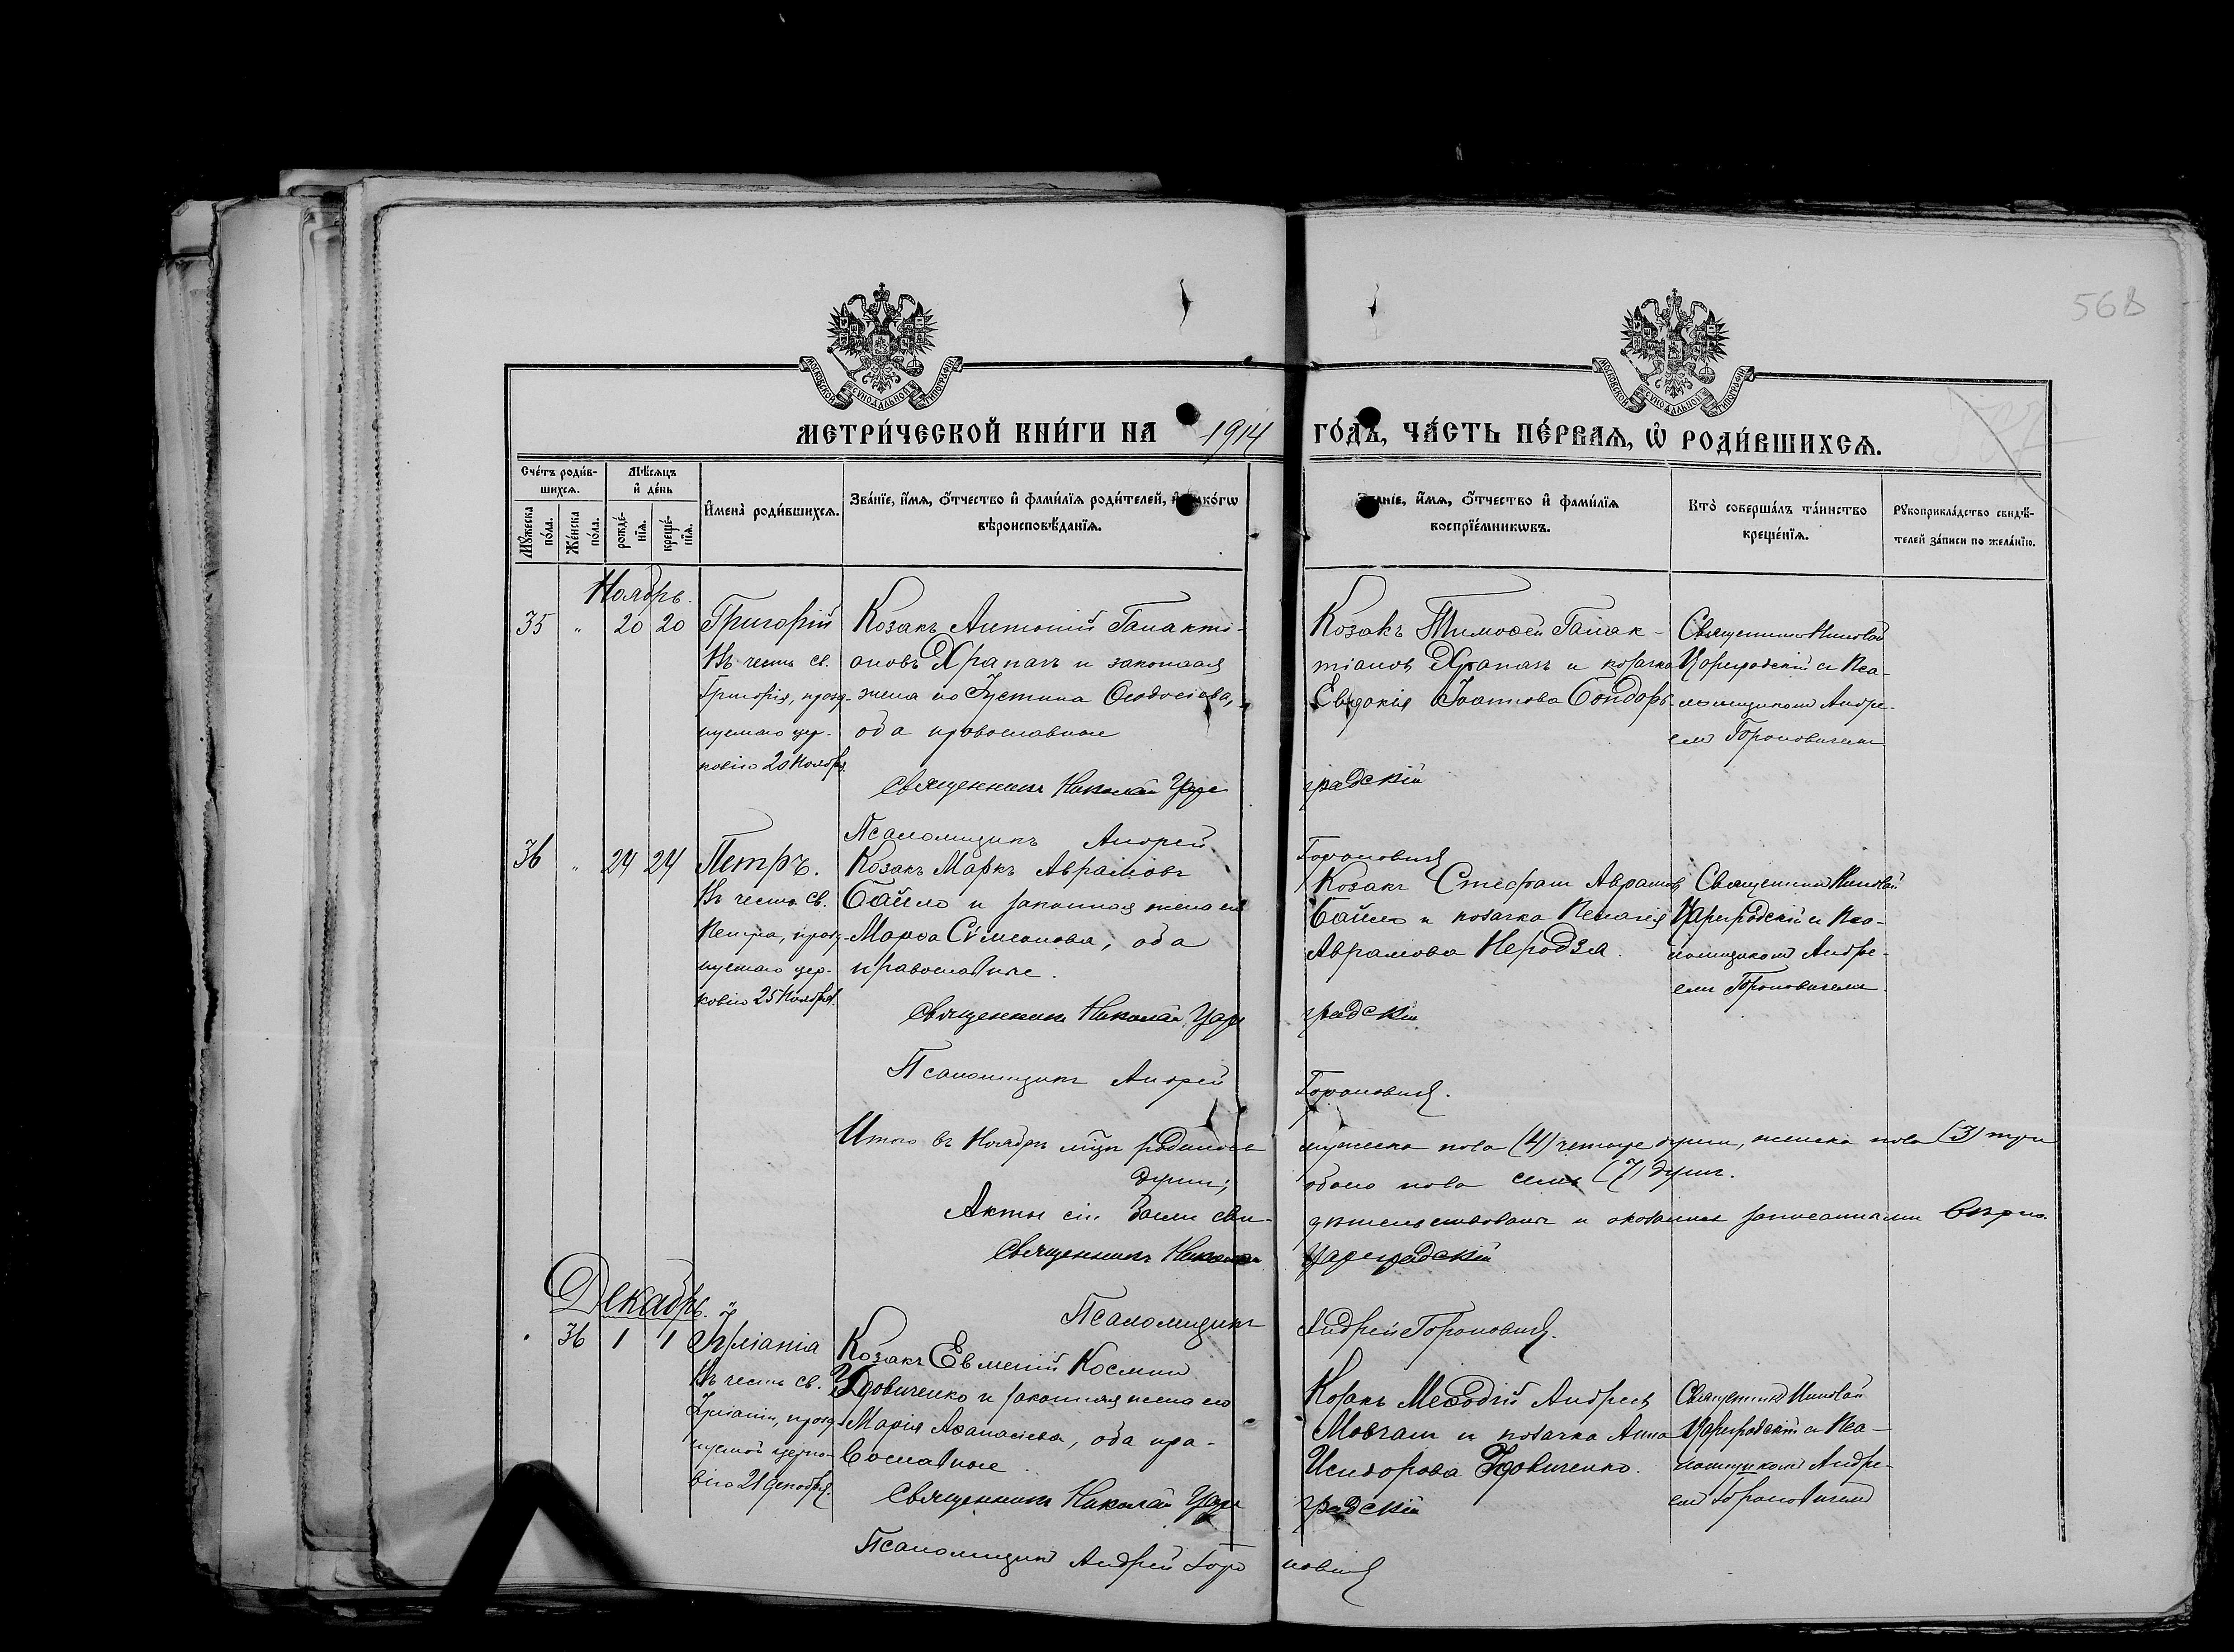 568
МОСКОВСКОЙ СѴНОДАЛЬНОЙ ТИПОГРАФІИ
МОСКОВСКОЙ СѴНОДАЛЬНОЙ ТИПОГРАФІИ
МЕТРИ́ЧЕСКОЙ КНИ́ГИ НА 1914 ГО́ДЪ, ЧА́СТЬ ПЕ́РВАЯ, Ѡ҆ РОДИ́ВШИХСѦ.
Сче́тъ роди́в-
шихсѧ.
Мꙋ́жеска по́ла.
Же́нска по́ла.
Мѣ́сѧцъ
и҆ де́нь
рожде́-
нїѧ.
креще́-
нїѧ.
И҆мена̀ роди́вшихсѧ.
Зва́нїе, и҆́мѧ, ѻ҆́тчество и҆ фами́лїѧ роди́телей, и҆ како́гѡ
вѣроисповѣ́данїѧ.
Зва́нїе, и҆́мѧ, ѻ҆́тчество и҆ фами́лїѧ
воспрїе́мникѡвъ.
Кто̀ соверша́лъ та́инство
креще́нїѧ.
Рꙋкоприкла́дство свидѣ́-
телей за́писи по жела́нїю.
Ноябрь.
35 " 20 20
Григорій
Въ честь св.
Григорія, празд-
нуемаго цер-
ковію 20 Ноября.
Козакъ Антоній Галакті-
оновъ Храпачъ и законная
жена его Іустина Ѳеодосіева,
оба православные
Козакъ Тимоѳей Галак-
тіоновъ Храпачъ и козачка
Евдокія Іоаннова Бондарь
Священникъ Николай
Цареградскій съ Пса-
ломщикомъ Андре-
емъ Гороновичемъ
Священникъ Николай Царе
градскій
Псаломщикъ Андрей
Гороновичъ
36 " 24 24
Петръ.
Въ честь св.
Петра, празд-
нуемаго цер-
ковію 25 Ноября.
Козакъ Маркъ Авраамовъ
Байло и законная жена его
Марѳа Сѵмеонова, оба
православные.
Козакъ Стефанъ Авраамовъ
Байло и козачка Пелагія
Авраамова Неродза.
Священникъ Николай
Цареградскій съ Пса-
ломщикомъ Андре-
емъ Гороновичемъ.
Священникъ Николай Царе
градскій
Псаломщикъ Андрей
Гороновичъ.
Итого въ Ноябрѣ м-цѣ родилось мужеска пола (4) четыре души, женска пола (3) три
души; обоего пола семь (7) душъ.
Акты сіи были сви-дѣтельствованы и оказались записанными вѣрно.
Священникъ Николай Цареградскій
Псаломщикъ Андрей Гороновичъ.
Декабрь.
" 36 1 1
Іуліанія
Въ честь св.
Іуліаніи, празд-
нуемой церко-
вію 21 Декабря.
Козакъ Евменій Косминъ
Удовиченко и законная жена его
Марія Аѳанасіева, оба пра-
вославные.
Козакъ Меѳодій Андреевъ
Мовчанъ и козачка Анна
Исидорова Удовиченко.
Священникъ Николай
Цареградскій съ Пса-
ломщикомъ Андре-
емъ Гороновичемъ
Священникъ Николай Царе
градскій
Псаломщикъ Андрей Горо
новичъ